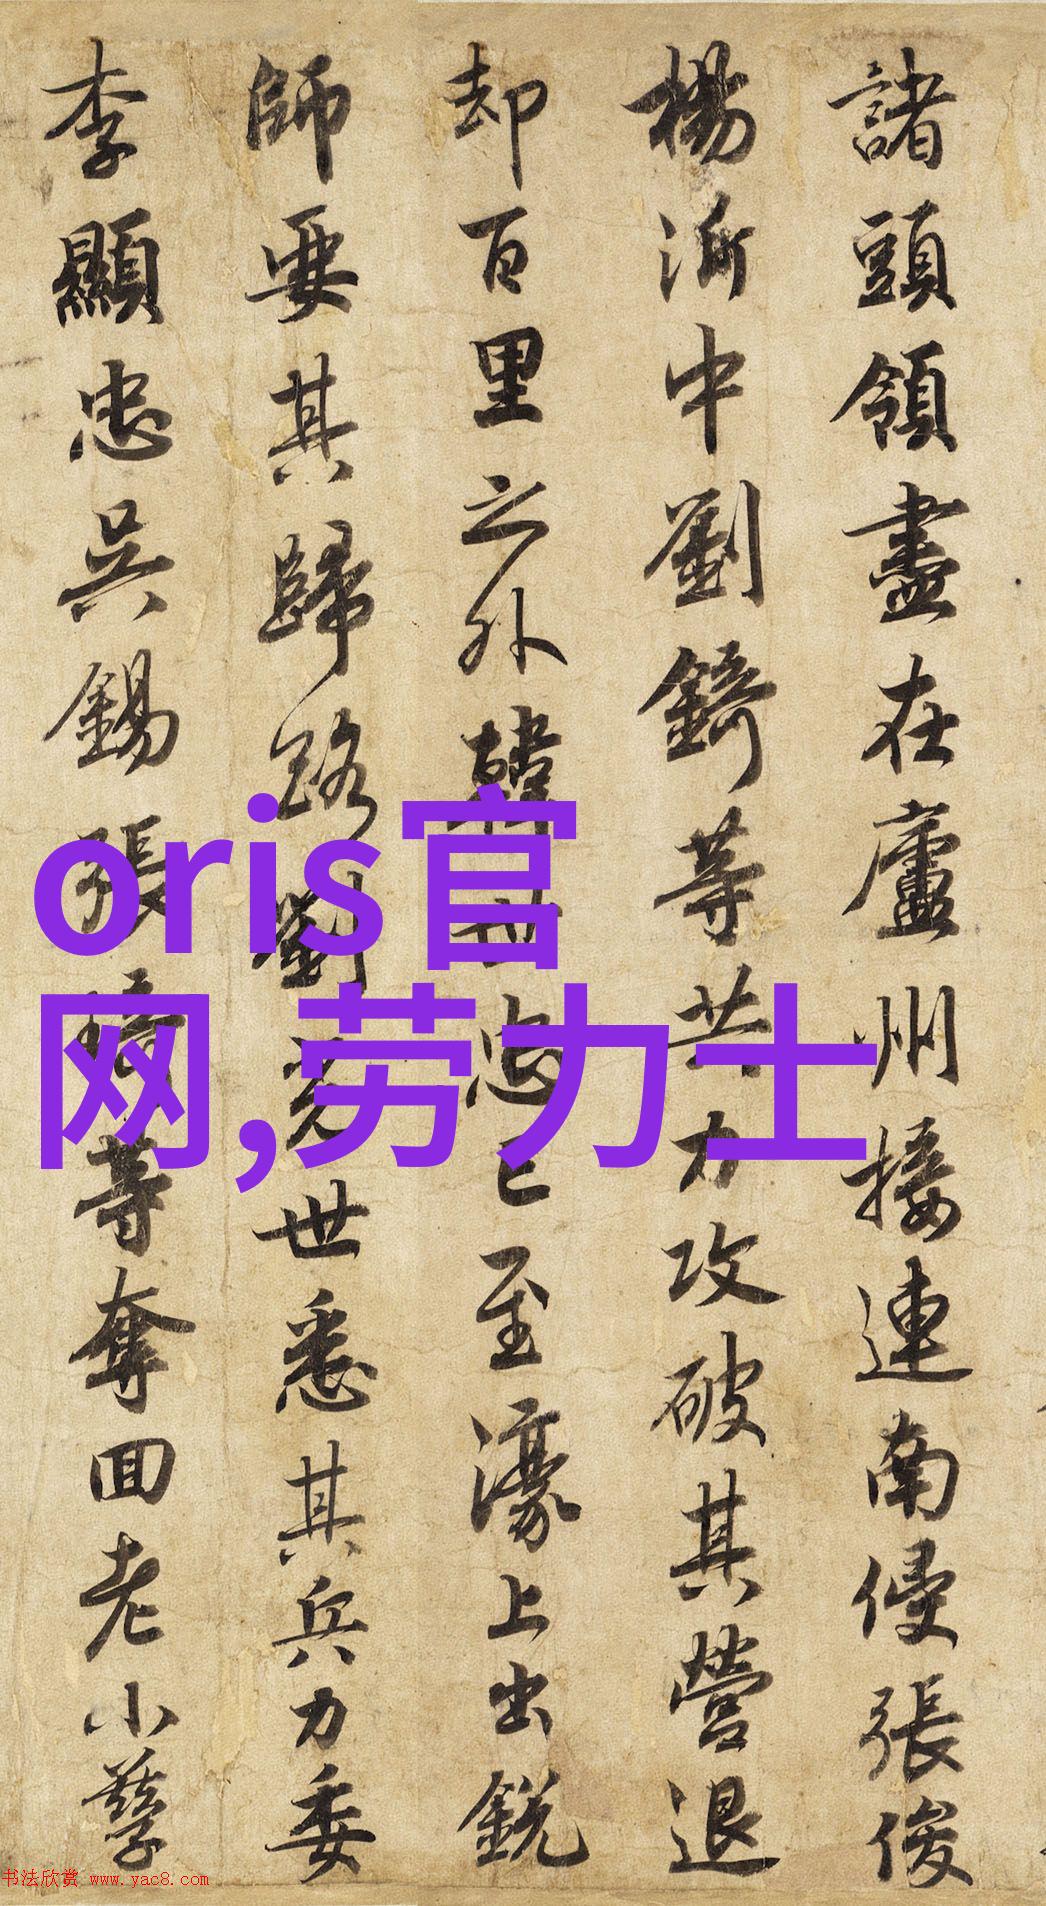 諸頭領盡在廬州接連南侵張俊
楊沂中劉錡等共力攻破其營退
却百里之外韓世忠已至濠上出銳
師要其歸路劉光世悉其兵力委
李顯忠吳錫張琦等奪回老小孳
oris官
网,劳力士
书法欣赏 www.yac8.com